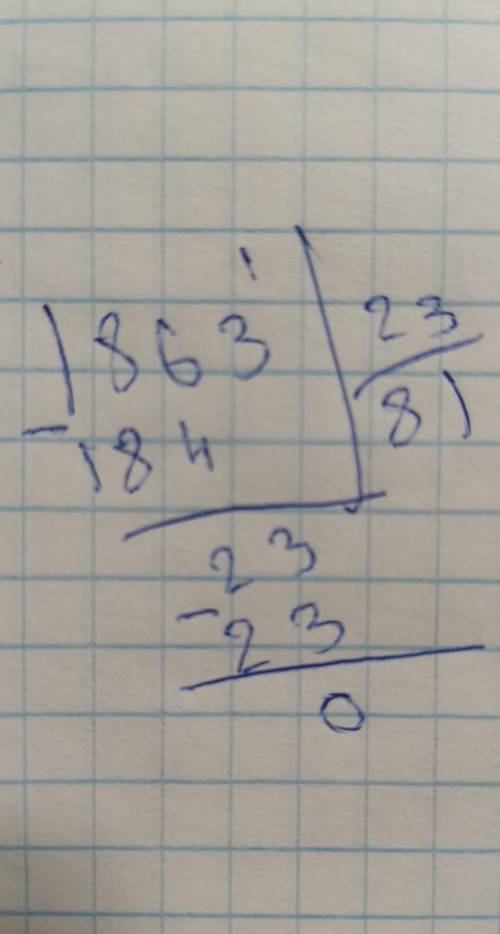 1863 23
- 184 81
23
- 23
0